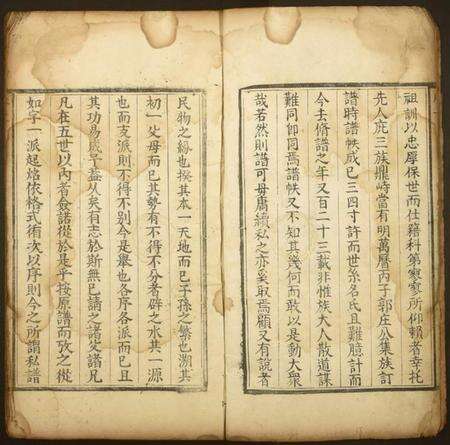 祖訓以忠厚保世而仕籍科第寥寥所仰賴者幸托
先人庇三族鼎峙當有明萬曆丙子郭庄八集族訂
譜時譜帙成已三四寸許而世系名氏且難臆計而
今去脩譜之年又百二十三載非惟族大人散道謀
難同卽同焉譜帙又不知其幾何而敢以是動大眾
哉若然則譜可毋庸續私之亦奚取焉顧又有說者
民物之紛也揆其本一天地而已子孫之繁也溯其
初一父母而已其勢有不得不分者辟之水其一源
也而支派則不得不別今是舉也各序各派而已且
其功易成予益矣有志於斯無已請之諸父諸兄
凡在五世以內者僉諾從於是乎按原譜而攷之從
如字一派起依格式次以序則今之所謂私譜